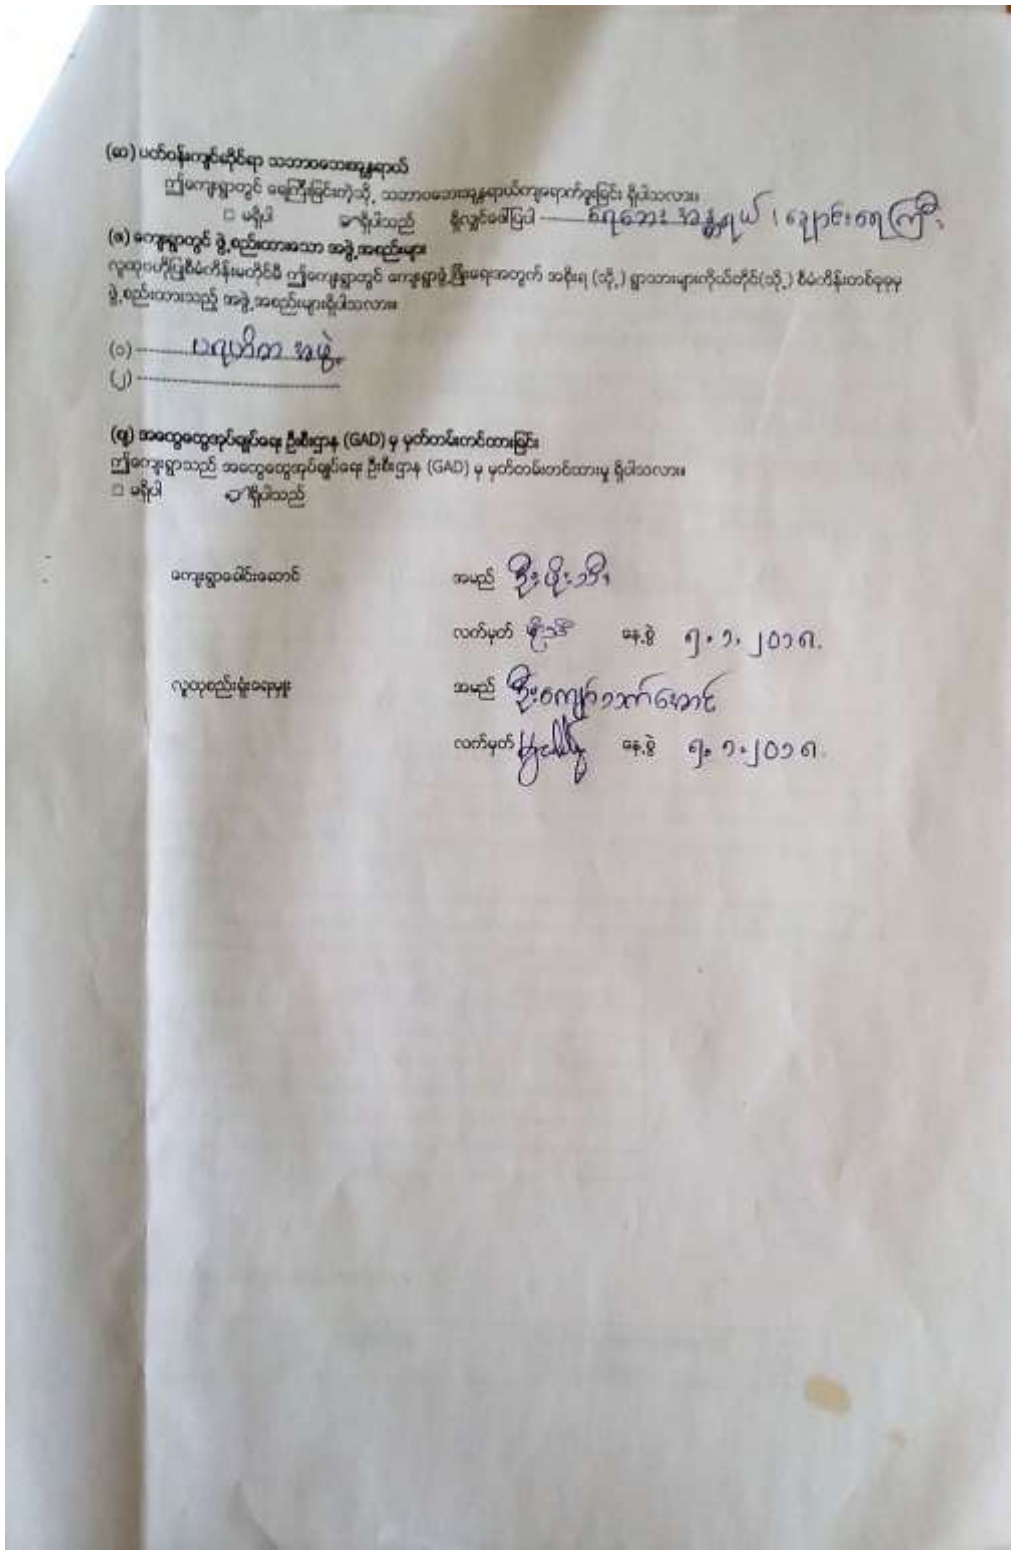 (ဆ) ပတ်ဝန်းကျင်ဆိုင်ရာ သဘာဝဘေးအန္တရာယ်
ဤကျေးရွာတွင် ရေကြီးခြင်းကဲ့သို့ သဘာဝဘေးအန္တရာယ်ကျရောက်ဖူးခြင်း ရှိပါသလား။
□ မရှိပါ ရှိပါသည် ရှိလျှင်ဖော်ပြပါ ရေဘေးအန္တရယ်၊ ချောင်းရေကြီး
(ဇ) ကျေးရွာတွင် ဖွဲ့စည်းထားသော အဖွဲ့အစည်းများ
လူထုဗဟိုပြုစီမံကိန်းမတိုင်မီ ဤကျေးရွာတွင် ကျေးရွာဖွံ့ဖြိုးရေးအတွက် အစိုးရ (သို့) ရွာသားများကိုယ်တိုင်(သို့) စီမံကိန်းတစ်ခုခုမှ
ဖွဲ့စည်းထားသည့် အဖွဲ့အစည်းများရှိပါသလား။
(၁) ပရဟိတ အဖွဲ့
(၂)
(ဈ) အထွေထွေအုပ်ချုပ်ရေး ဦးစီးဌာန (GAD) မှ မှတ်တမ်းတင်ထားခြင်း
ဤကျေးရွာသည် အထွေထွေအုပ်ချုပ်ရေး ဦးစီးဌာန (GAD) မှ မှတ်တမ်းတင်ထားမှု ရှိပါသလား။
□ မရှိပါ ရှိပါသည်
ကျေးရွာခေါင်းဆောင် အမည် ဦးဖိုးသီး
လက်မှတ် နေ့စွဲ ၅.၁.၂၀၁၈.
လူထုစည်းရုံးရေးမှူး အမည် ဦးကျော်သက်အောင်
လက်မှတ် နေ့စွဲ ၅.၁.၂၀၁၈.